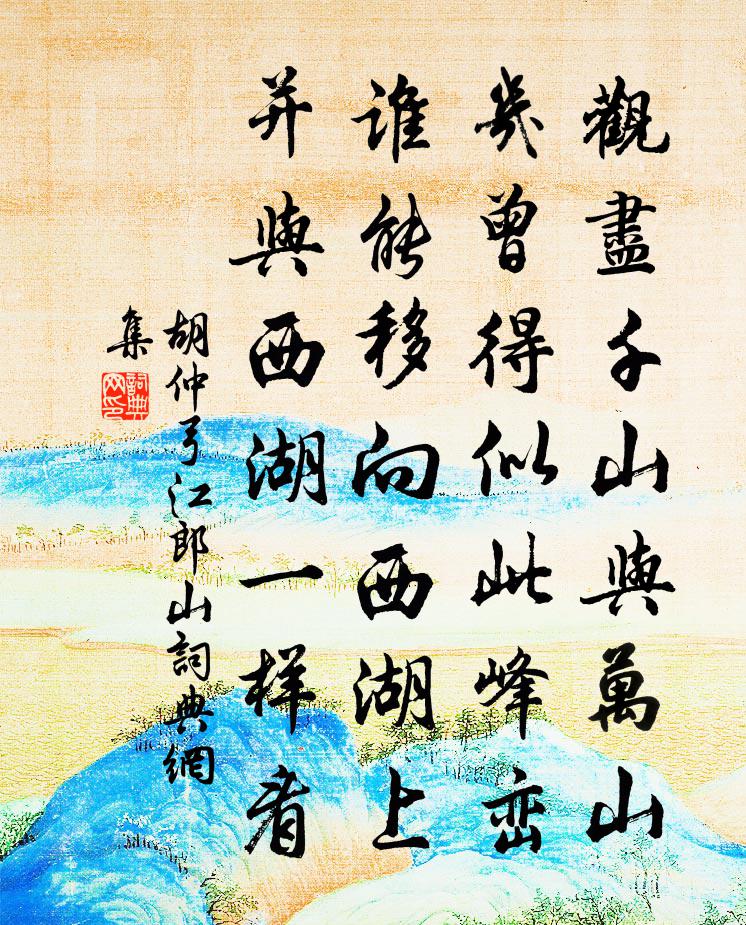 觀盡千山與萬山
幾曾得似此峰峦
誰能移向西湖上
并與西湖一样看
胡仲弓江郎山詞典網
集
詞典
网印